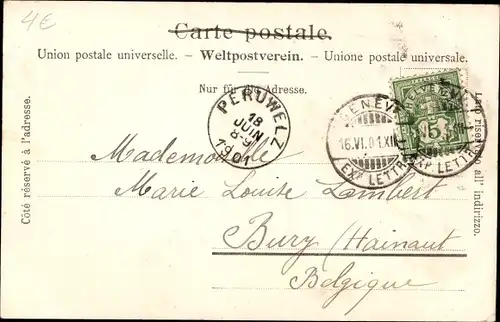 4€
Carte postale.
Union postale universelle. – Weltpostverein. – Unione postale universale.
Nur für die Adresse.
Côté réservé à l'adresse.
Lato riservato all' indirizzo.
PERUWELZ
18
JUIN
8-9
1901
GENÈVE
16.VI.01.XII
EXP. LETTR.
HELVETIA
5
EXP. LETTR.
Mademoiselle
Marie Louise Lambert
Bury (Hainaut
Belgique